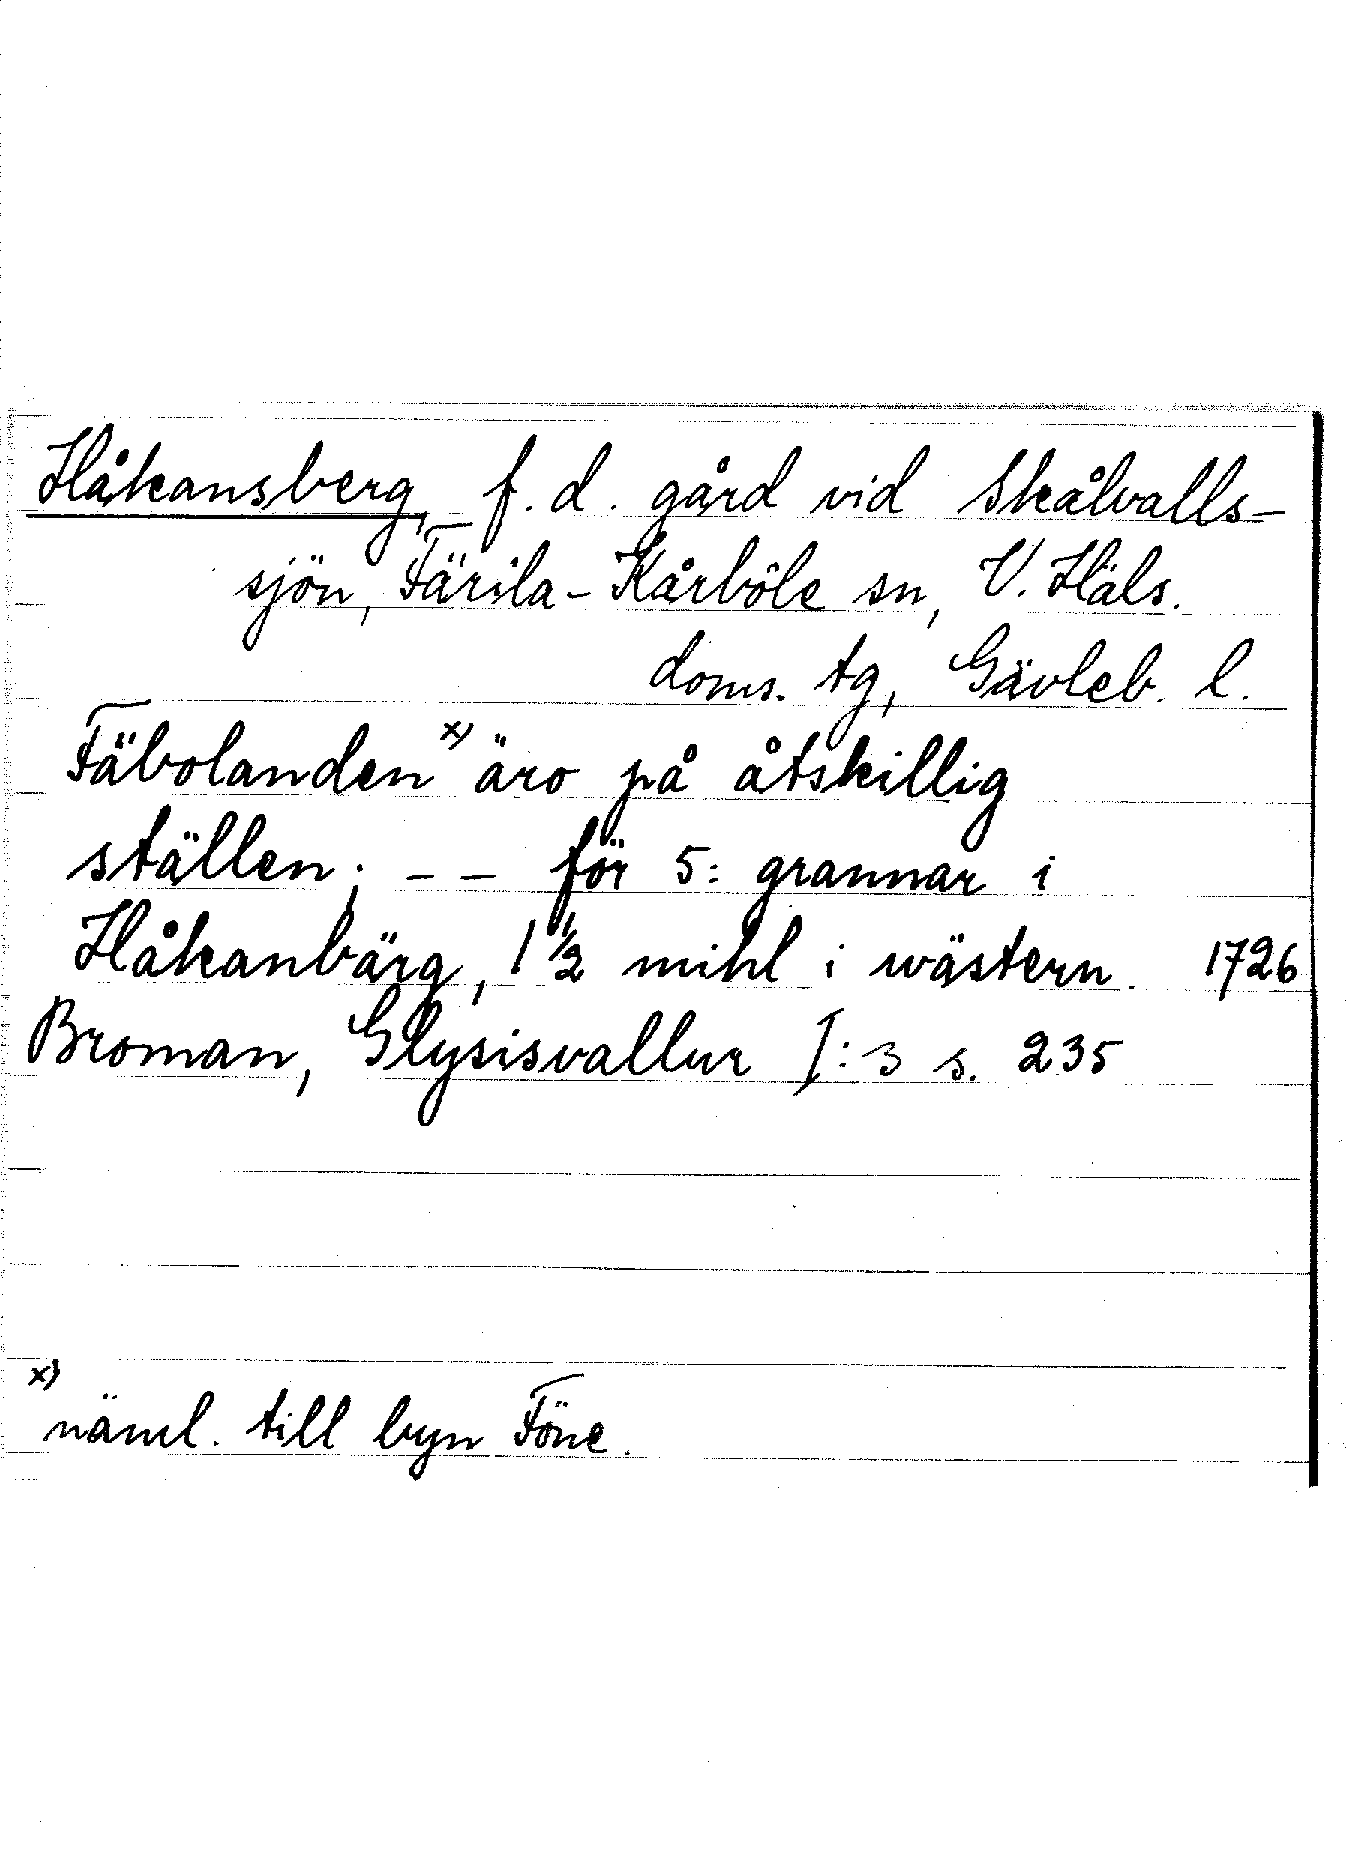 Håkansberg, f. d. gård vid Skålvalls-
sjön, Färila-Kårböle sn, V. Häls.
doms. tg, Gävleb. l.
Fäbolanden x) äro på åtskillig
ställen; -- för 5: grannar i
Håkanbärg, 1 1/2 mihl i wästern. 1726
Broman, Glysisvallur I:3 s. 235
x) näml. till byn Föne.